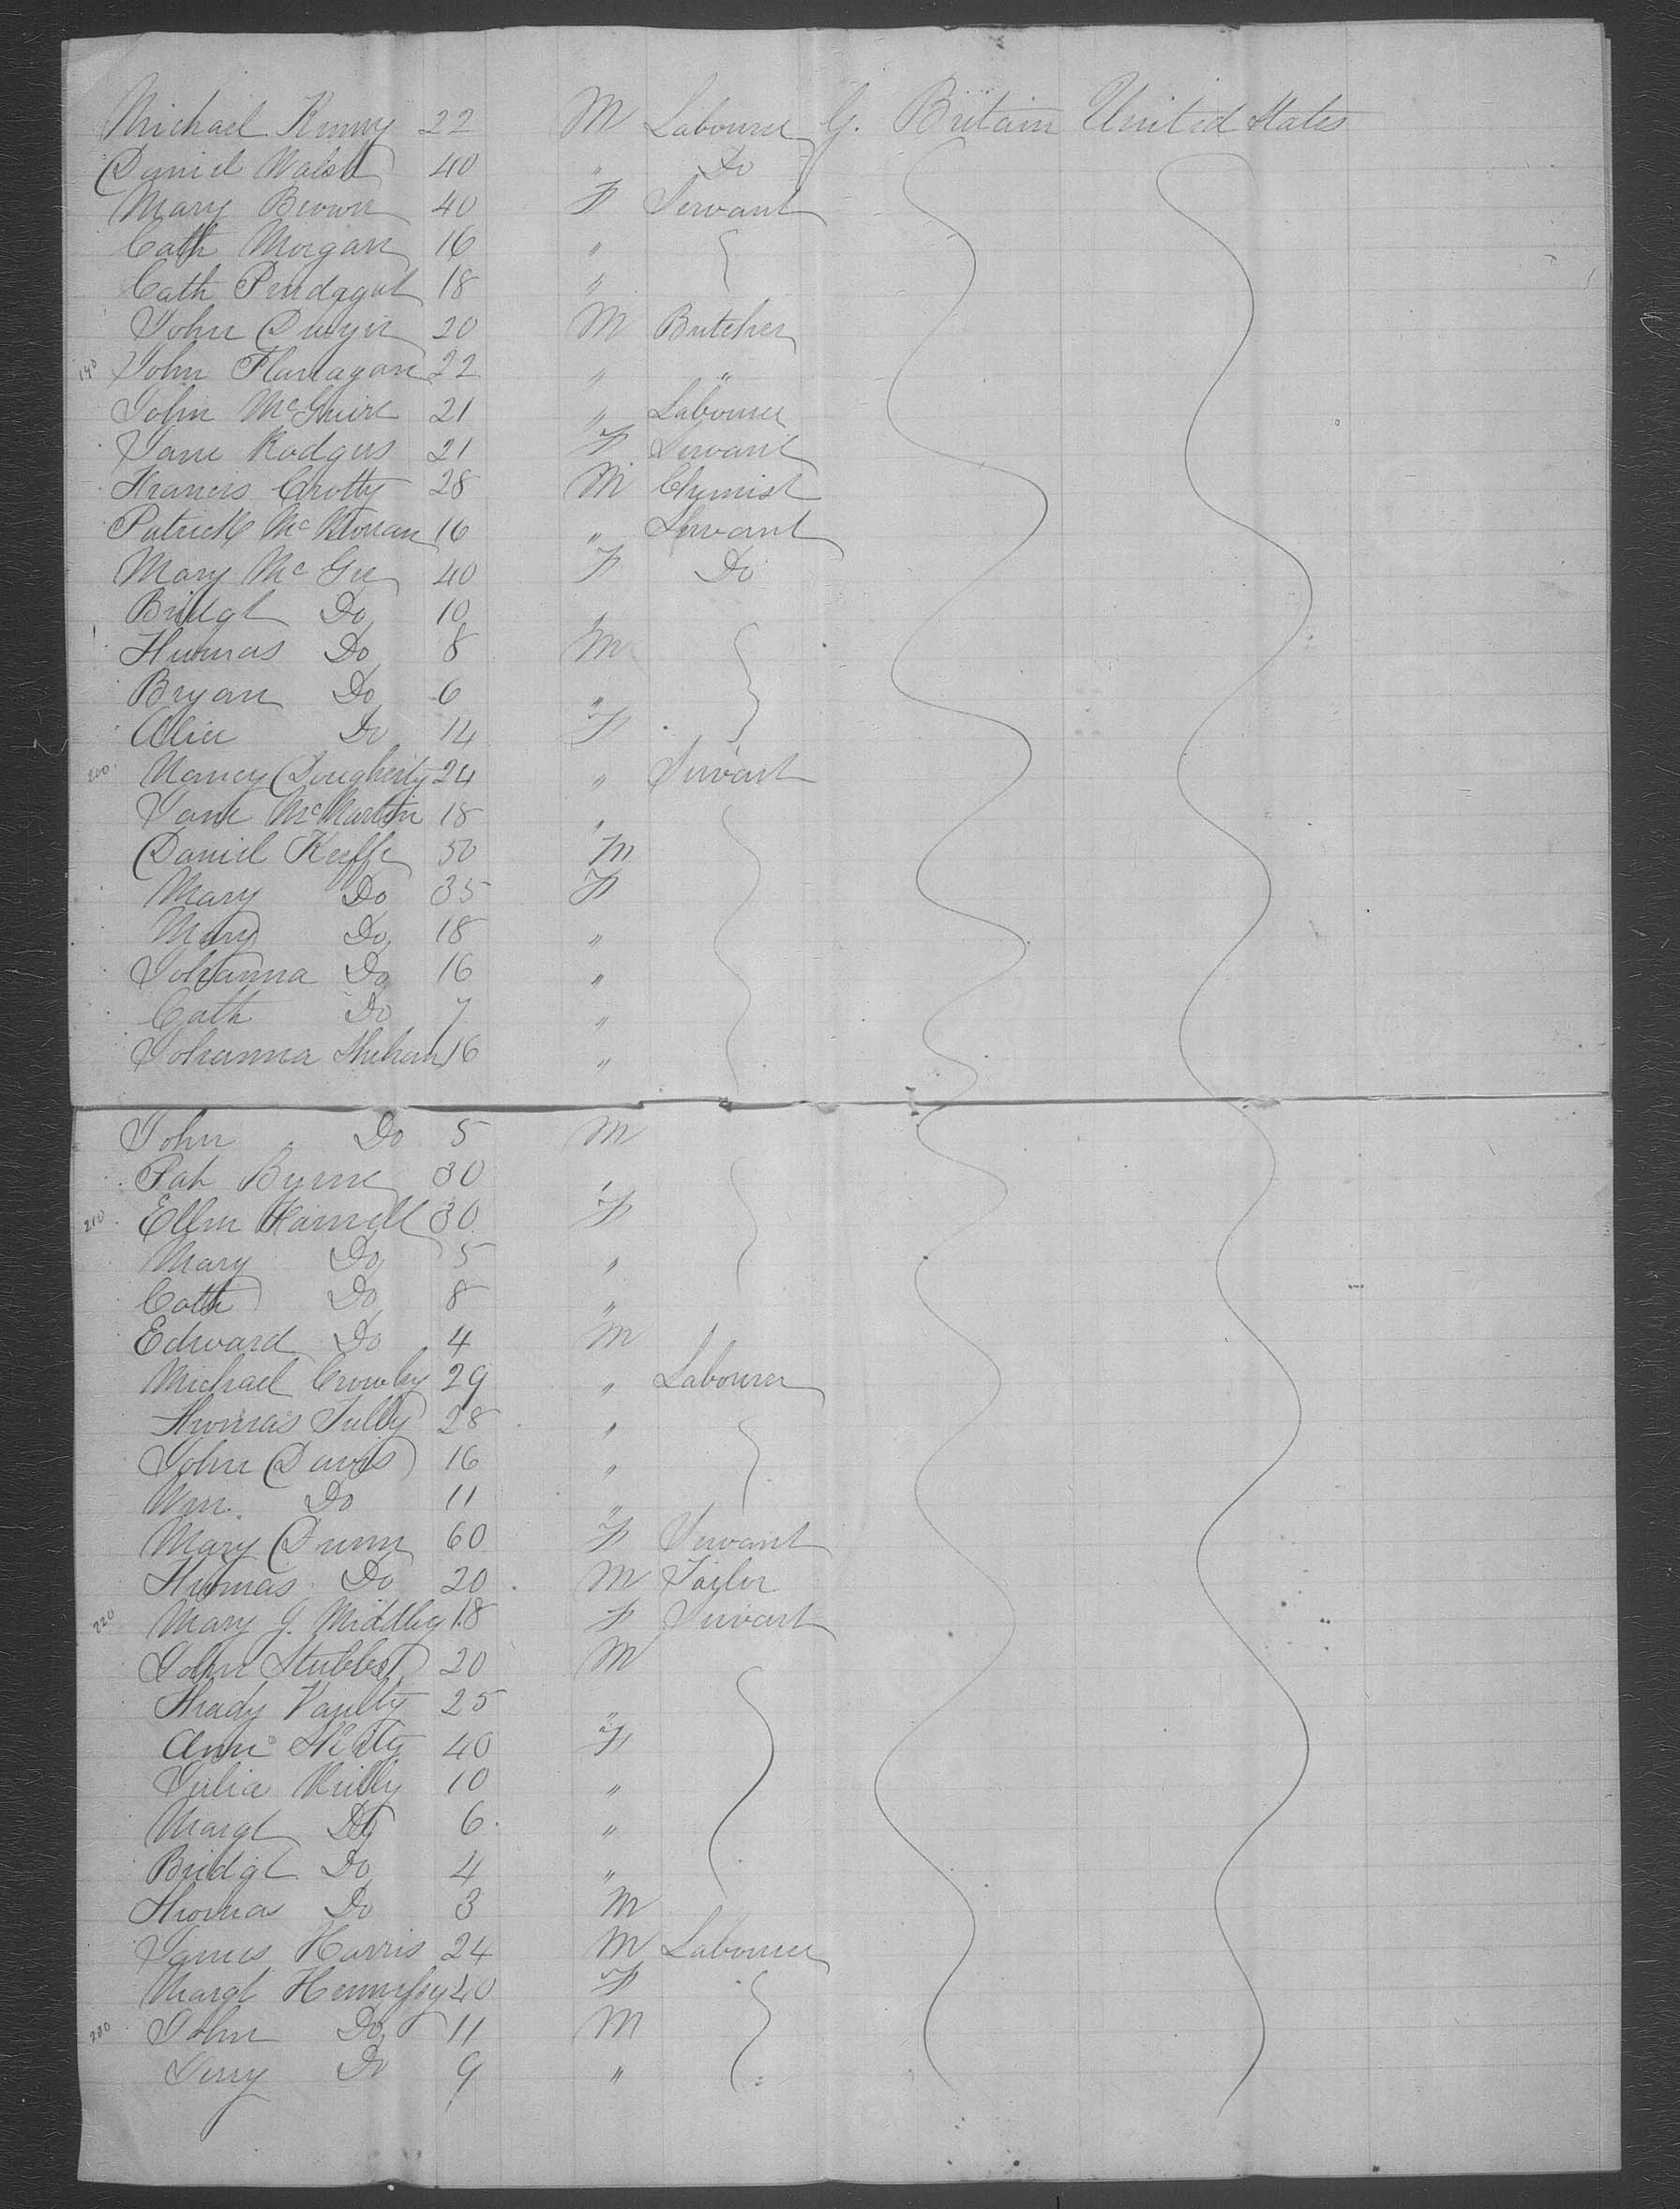 Michael Kenny 22 M Labourer G. Britain United States
Daniel Walsh 40 " Do
Mary Brown 40 F Servant
Cath Morgan 16 "
Cath Pendagat 18 "
John Dwyer 20 M Butcher
190 John Flanagan 22 " "
John McGuire 21 " Labourer
Jane Rodgers 21 F Servant
Francis Crotty 28 M Chemist
Patrick Mc 16 " Servant
Mary McGee 40 F Do
Bridgt Do 10 "
Thomas Do 8 M
Bryan Do 6 "
Alice Do 14 F
200 Nancy Dougherty 24 " Servant
Jane McMartin 18 "
Daniel Keeffe 50 M
Mary Do 35 F
Mary Do 18 "
Johanna Do 16 "
Cath Do 7 "
Johanna Shehan 16 "
John Do 5 M
Pat Byrne 30 "
210 Ellen Farrell 30 F
Mary Do 5 "
Cath Do 8 "
Edward Do 4 M
Michael Crowley 29 " Labourer
Thomas Tully 28 "
John Davis 16 "
Wm. Do 11 "
Mary Dunn 60 F Servant
Thomas Do 20 M Tailor
220 Mary J. Middley 18 F Servant
John Stubbs 20 M
25 "
Ann 40 F
Julia Reilly 10 "
Margt Do 6 "
Bridgt Do 4 "
Thomas Do 3 M
James Harris 24 M Labourer
Margt Hennessy 40 F
230 John Do 11 M
Jerry Do 9 "